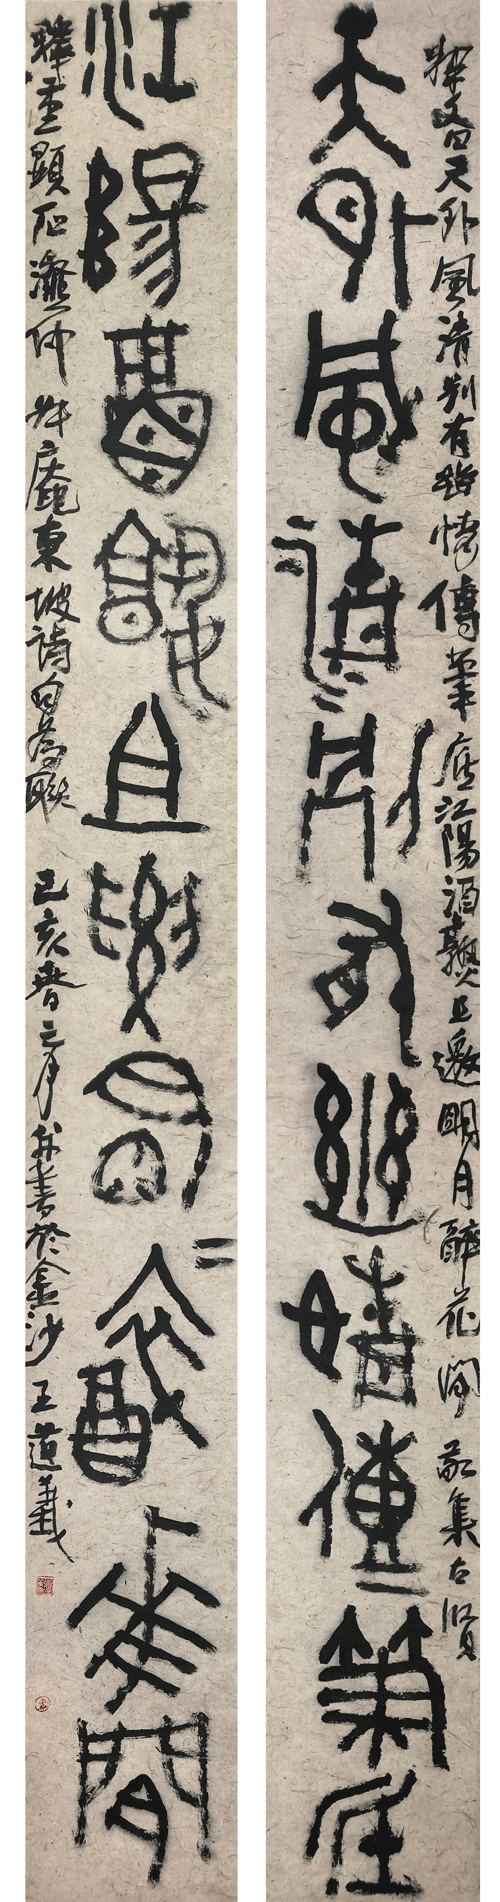 釋文曰天外風清別有幽情傳筆底江陽酒熟且邀明月醉花間 敬集古賢
天外風清別有幽情傳筆底
江陽酒熟且邀明月醉花間
釋重顯 仲 東坡詩句為聯 己亥春二月 並書於金沙王道義